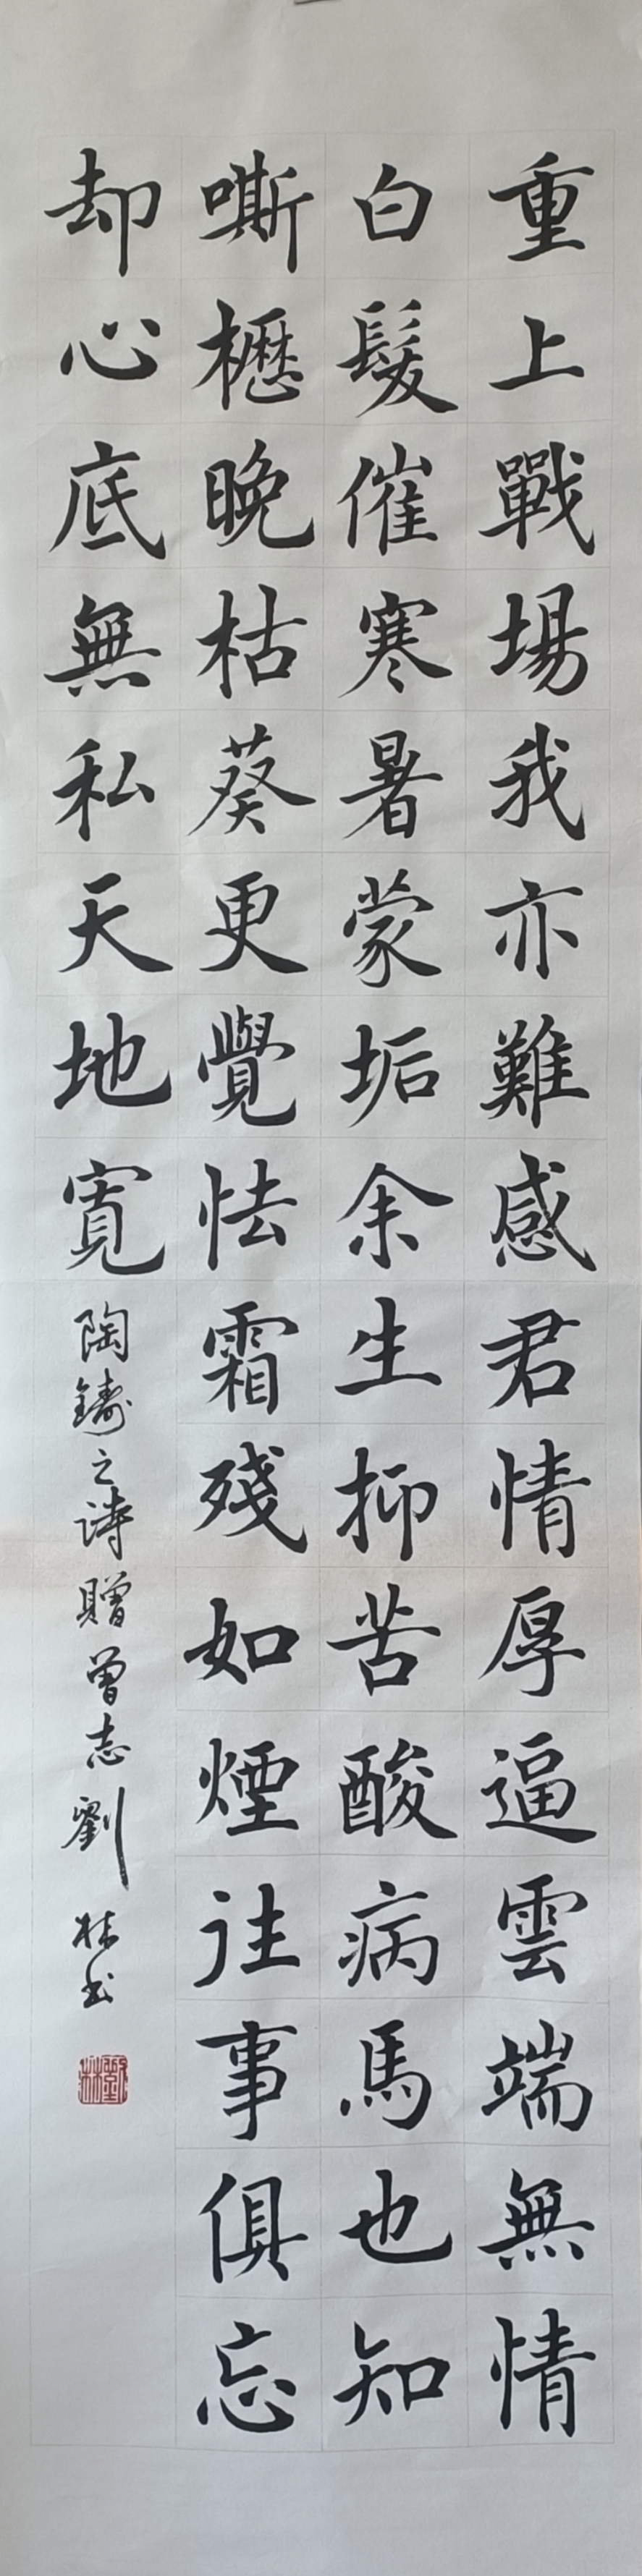 重上戰場我亦難感君情厚逼雲端無情
白髮催寒暑蒙垢余生抑苦酸病馬也知
嘶櫪晚枯葵更覺怯霜殘如煙往事俱忘
却心底無私天地寬
陶鑄之詩贈曾志劉林书
劉林